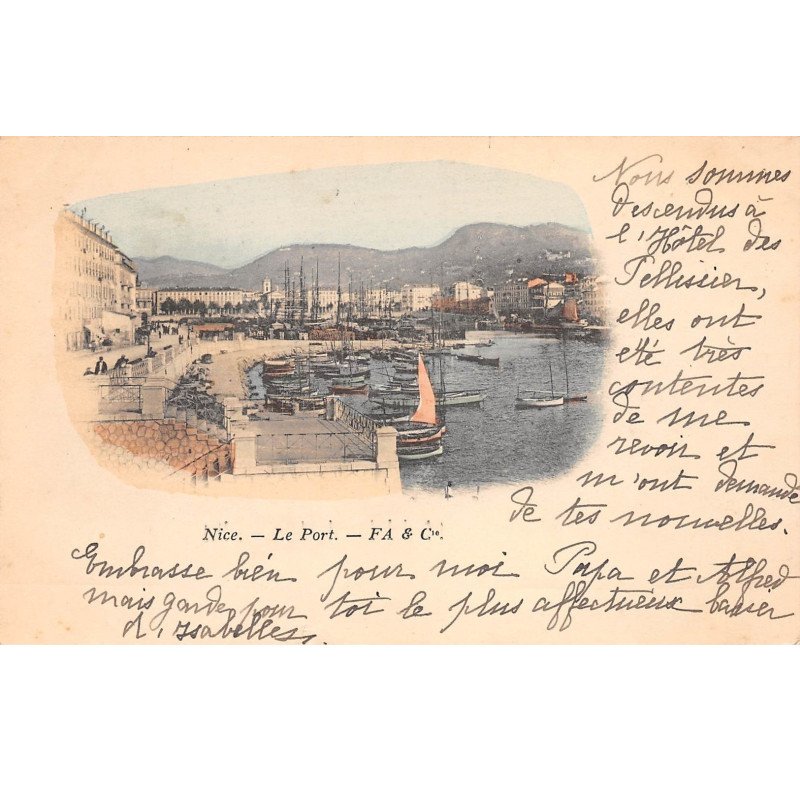 Nous sommes
descendus à
l'Hôtel des
Pellissier,
elles ont
été très
contentes
de me
revoir et
m'ont demandé
de tes nouvelles.
Nice. — Le Port. — FA & Cie.
Embrasse bien pour moi Papa et Alfred
mais garde pour toi le plus affectueux baiser
d'Isabelle